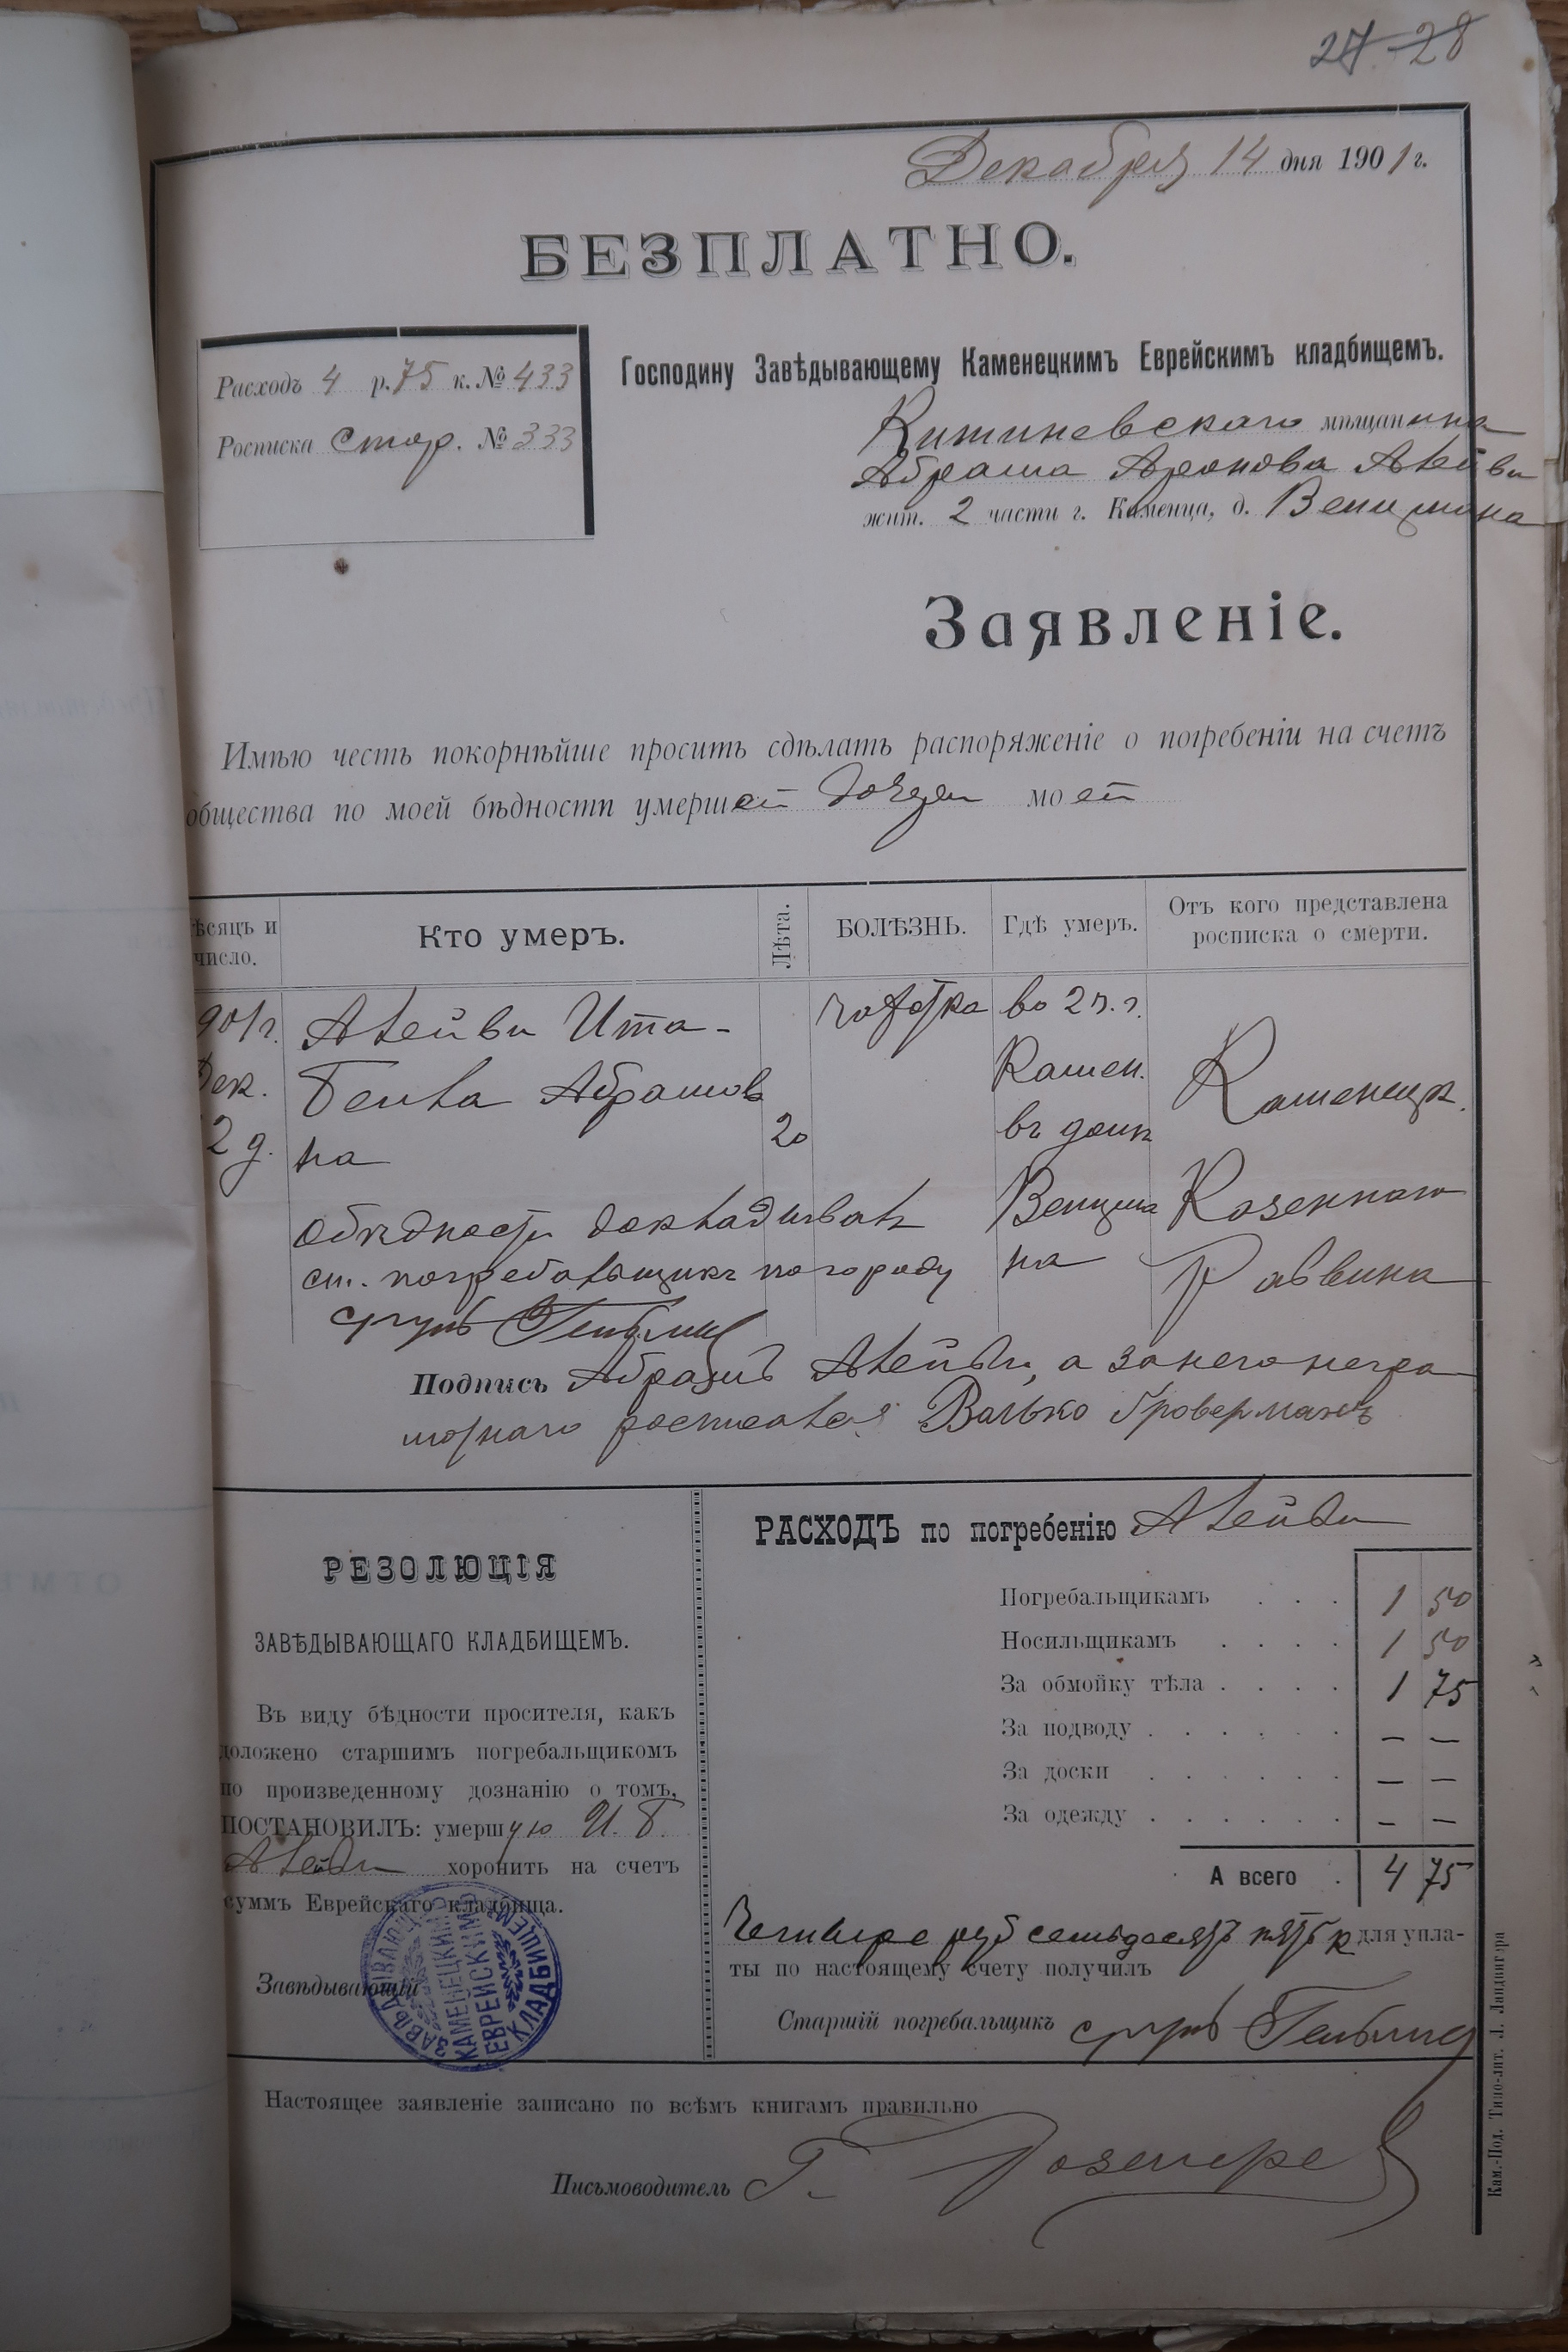 27 28
Декабря 14 дня 1901 г.
БЕЗПЛАТНО.
Расходъ 4 р. 75 к. № 433
Росписка стар. № 333
Господину Завѣдывающему Каменецкимъ Еврейскимъ кладбищемъ.
Кишиневскаго мѣщанина
Абрама Аронова Алейви
жит. 2 части г. Каменца, д. Венцмана
Заявленіе.
Имѣю честь покорнѣйше просить сдѣлать распоряженіе о погребеніи на счетъ
общества по моей бѣдности умершей дочери моей
ѣсяцъ и
число.
Кто умеръ.
Лѣта.
БОЛѢЗНЬ.
Гдѣ умеръ.
Отъ кого представлена
росписка о смерти.
901 г.
Дек.
2 д.
Алейви Ита-
Бейла Абрамов
на
20
чахотка
во 2 ч. г.
Камен.
въ домѣ
Венцма
на
Каменецк.
Казеннаго
Раввина
о бѣдности докладывалъ
ст. погребальщикъ по городу
Подпись Абрамъ Алейви, а за него негра
мотнаго росписался Волько Гроверманъ
РЕЗОЛЮЦІЯ
ЗАВѢДЫВАЮЩАГО КЛАДБИЩЕМЪ.
Въ виду бѣдности просителя, какъ
доложено старшимъ погребальщикомъ
по произведенному дознанію о томъ,
ПОСТАНОВИЛЪ: умершую И. Б.
Алейви хоронить на счетъ
суммъ Еврейскаго кладбища.
Завѣдывающій
ЗАВѢДЫВАЮЩ. КАМЕНЕЦКИМЪ ЕВРЕЙСКИМЪ КЛАДБИЩЕМЪ
РАСХОДЪ по погребенію Алейви
Погребальщикамъ . . . 1 50
Носильщикамъ . . . . 1 50
За обмойку тѣла . . . . 1 75
За подводу . . . . . . — —
За доски . . . . . . — —
За одежду . . . . . . — —
А всего . 4 75
Четыре руб семьдесятъ пять к для упла-
ты по настоящему счету получилъ
Старшій погребальщикъ
Настоящее заявленіе записано по всѣмъ книгамъ правильно
Письмоводитель Г.
Кам.-Под. Типо-лит. Л. Ландвигера